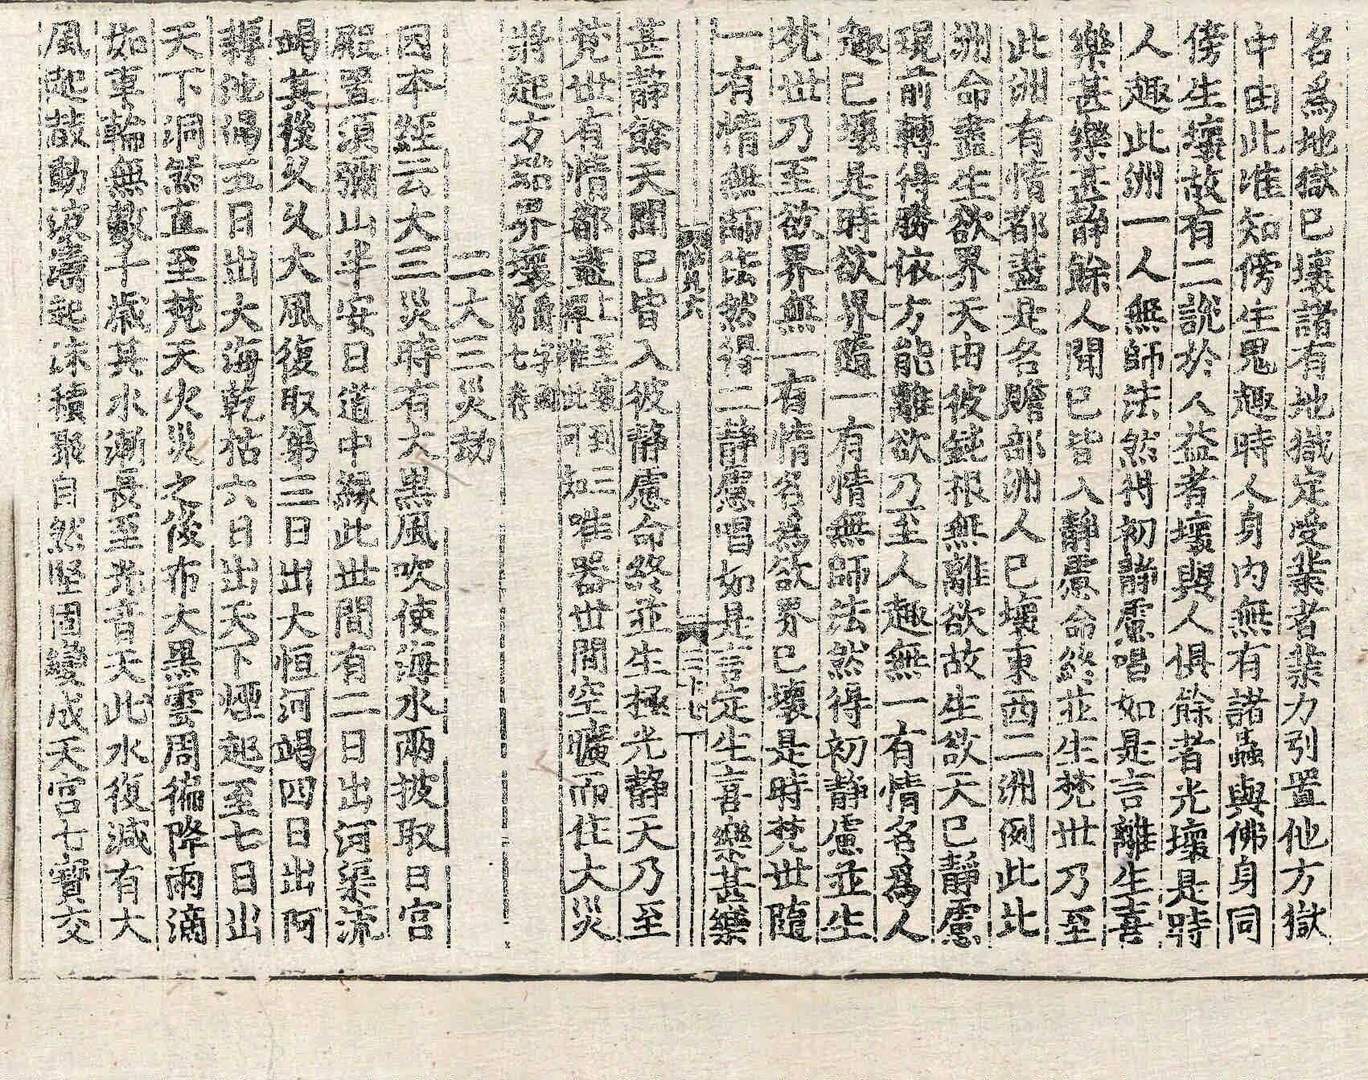 名為地獄已壞諸有地獄定受業者業力引置他方獄
中由此准知傍生鬼趣時人身內無有諸蟲與佛身同
傍生壞故有二說於人益者壞與人俱餘者先壞是時
人趣此洲一人無師法然得初靜慮唱如是言離生喜
樂甚樂甚靜餘人聞已皆入靜慮命終並生梵世乃至
此洲有情都盡是名贍部洲人已壞東西二洲例此北
洲命盡生欲界天由彼鈍根無離欲故生欲天已靜慮
現前轉得勝依方能離欲乃至人趣無一有情名為人
趣已壞是時欲界隨一有情無師法然得初靜慮並生
梵世乃至欲界無一有情名為欲界已壞是時梵世隨
一有情無師法然得二靜慮唱如是言定生喜樂甚樂
甚靜餘天聞已皆入彼靜慮命終並生極光靜天乃至
梵世有情都盡上至壞到二禪准此可知唯器世間空曠而住大災
將起方始界壞
二大三災劫
因本經云大三災時有大黑風吹使海水兩披取日宮
殿置須彌山半安日道中緣此世間有二日出河渠流
竭其後久久大風復取第三日出大恒河竭四日出阿
耨池竭五日出大海乾枯六日出天下煙起至七日出
天下洞然直至梵天火災之後布大黑雲周徧降雨滴
如車輪無數千歲其水漸長至光音天此水復減有大
風起鼓動波濤起沫積聚自然堅固變成天宮七寶交